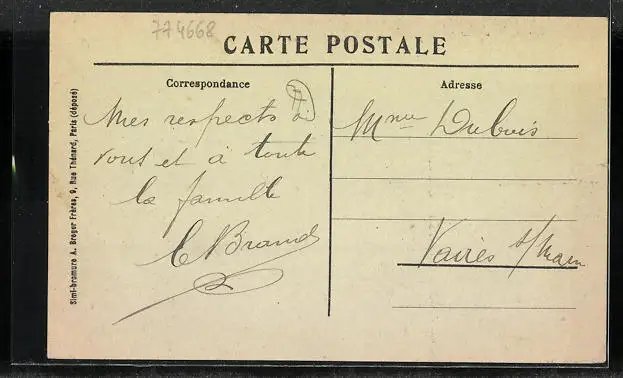 774668
CARTE POSTALE
Correspondance
Adresse
Mes respects à
vous et à toute
la famille
Mme Dubuis
Vaires s/Marn
Simi-bromure A. Breger Frères, 9, Rue Thénard, Paris (déposé)